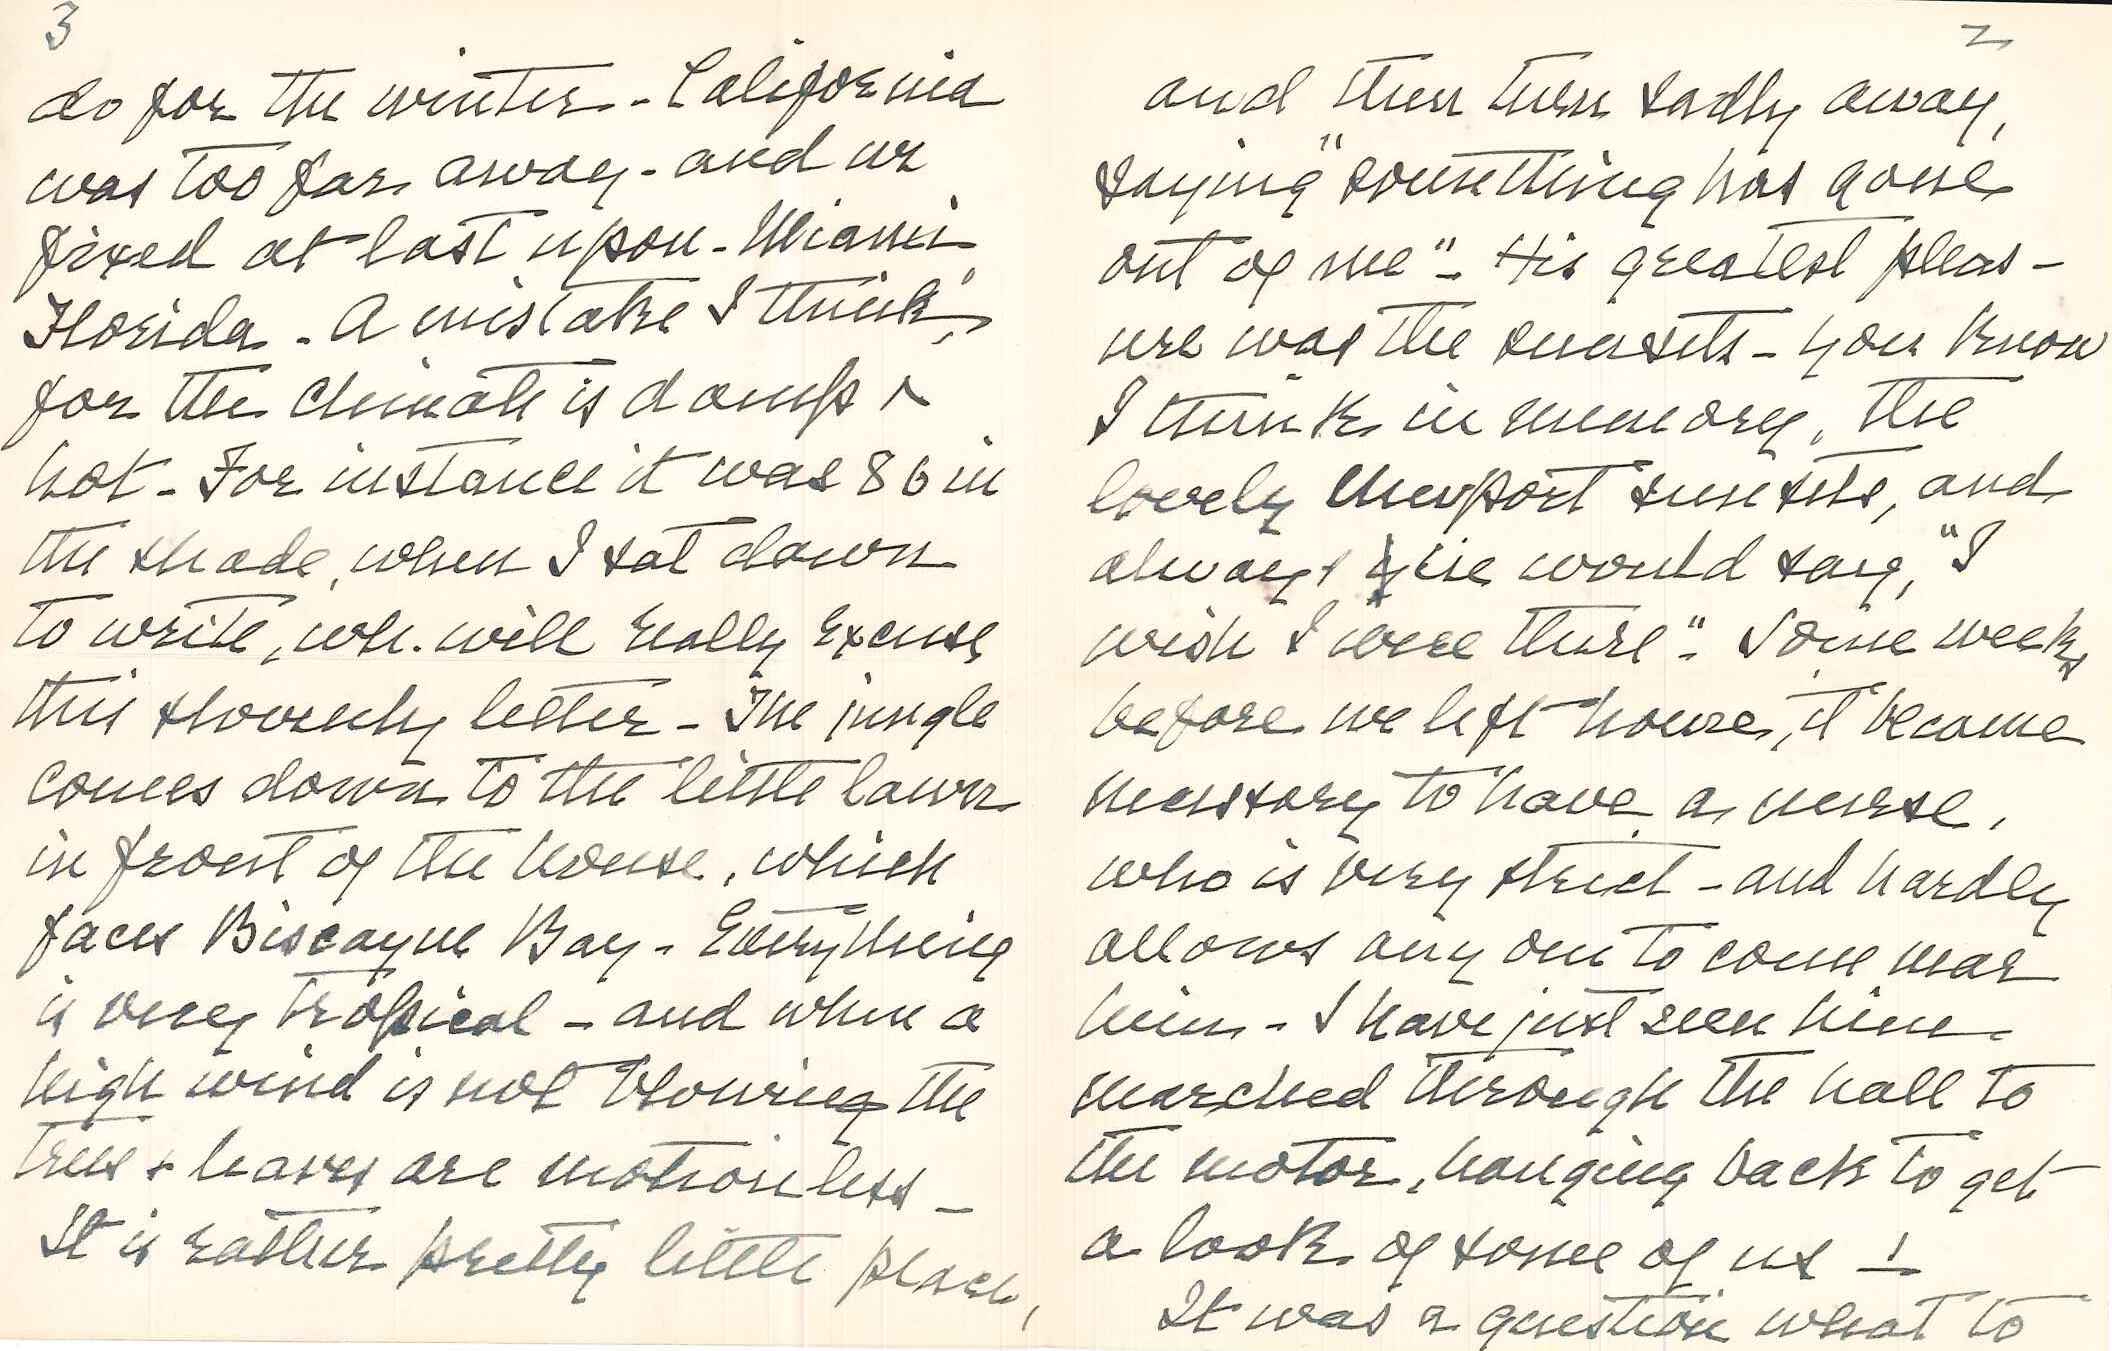 2
and then turn sadly away,
saying "something has gone
out of me" - His greatest pleas-
ure was the sunsets - you know
I think in memory, the
lovely Newport sunsets, and
always he would say, "I
wish I were there". Some weeks
before we left home, it became
necessary to have a nurse,
who is very strict - and hardly
allows any one to come near
him - I have just seen him
marched through the hall to
the motor, hanging back to get
a look of some of us!
It was a question what to
3
do for the winter - California
was too far away - and we
fixed at last upon - Miami,
Florida - A mistake I think,
for the climate is damp &
hot - For instance it was 86 in
the shade, when I sat down
to write, wh. will really excuse
this slovenly letter - The jungle
comes down to the little lawn
in front of the house, which
faces Biscayne Bay - Everything
is very tropical - and when a
high wind is not blowing the
trees & leaves are motionless -
It is rather pretty little place,